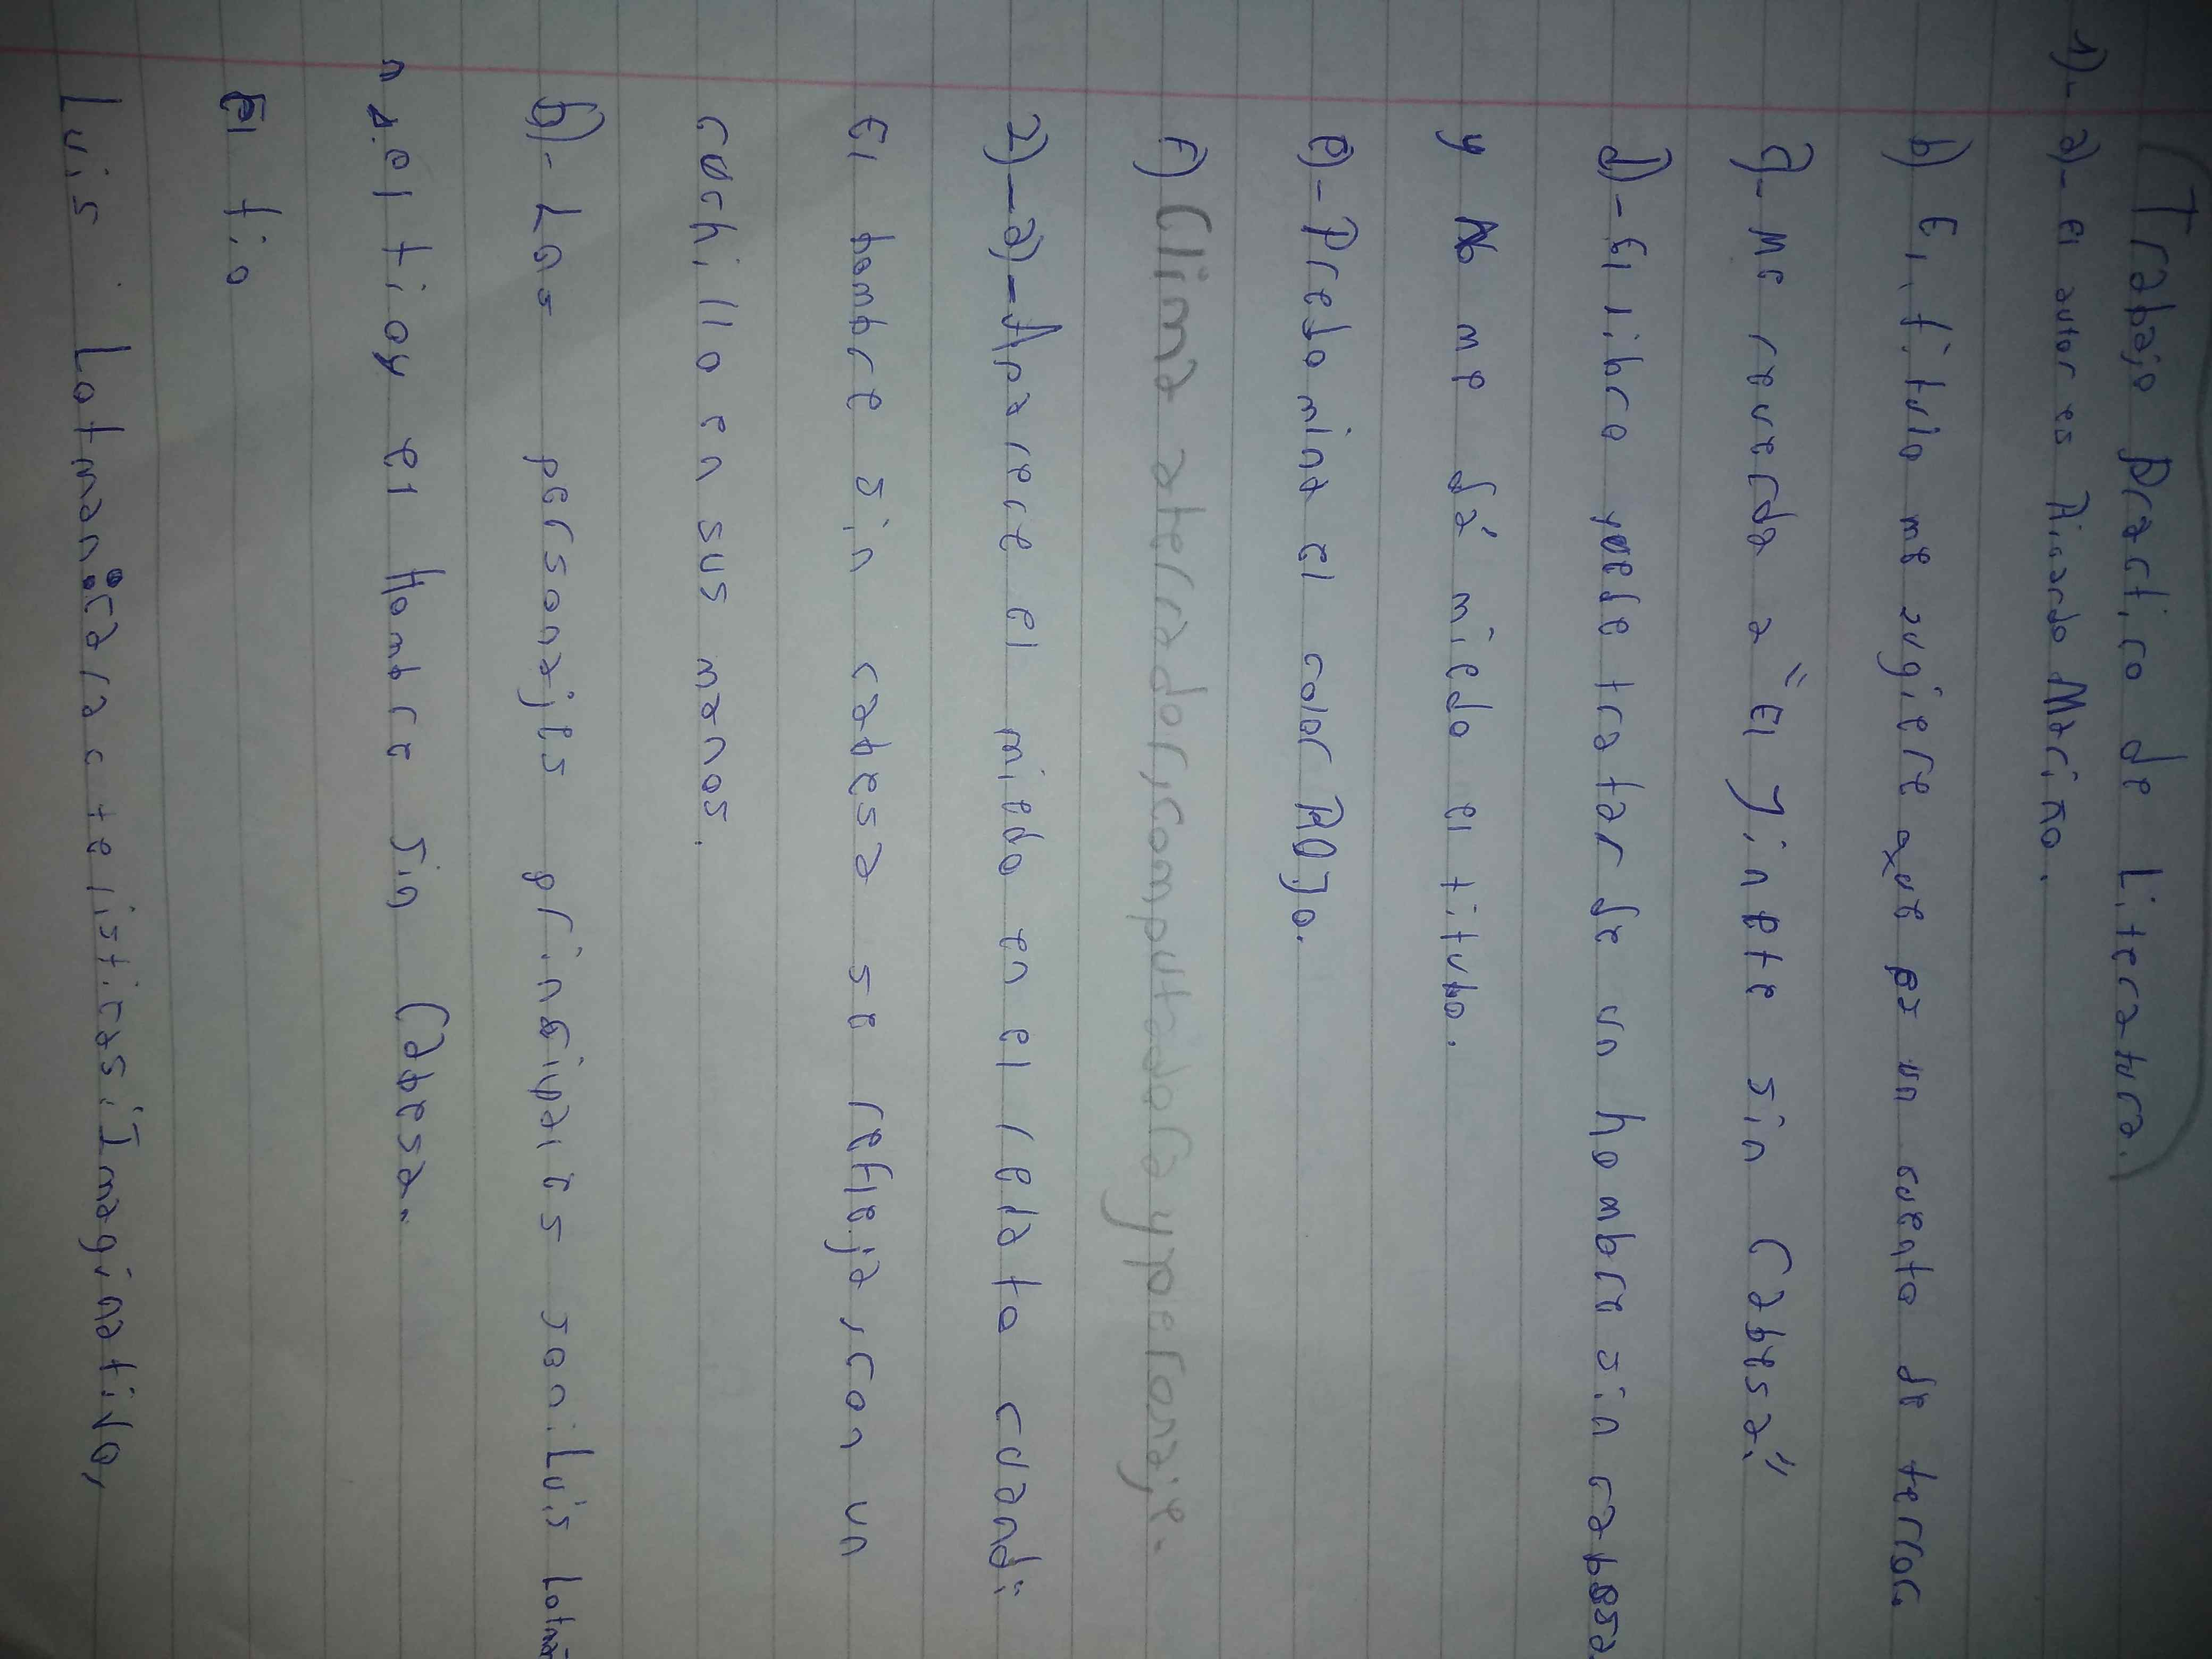 Trabajo Practico de Literatura.
1)- a)- El autor es Ricardo Mariño.
b) El titulo me sugiere que es un cuento de terror.
c)- Me recuerda a "El Jinete sin Cabesa"
d)- El libro puede tratar de un hombre sin cabesa
y No me dá miedo el titulo.
e)- Predomina el color ROJO.
f) Clima aterrador, computadora y personaje.
2)-a)- Aparece el miedo en el relato cuand
El hombre sin cabesa se refleja, con un
cuchillo en sus manos.
b)- Los personajes principales son: Luis Lotman
n, el tio y el Hombre sin Cabesa.
El tio
Luis Lotman: caracteristicas: Imaginativo,